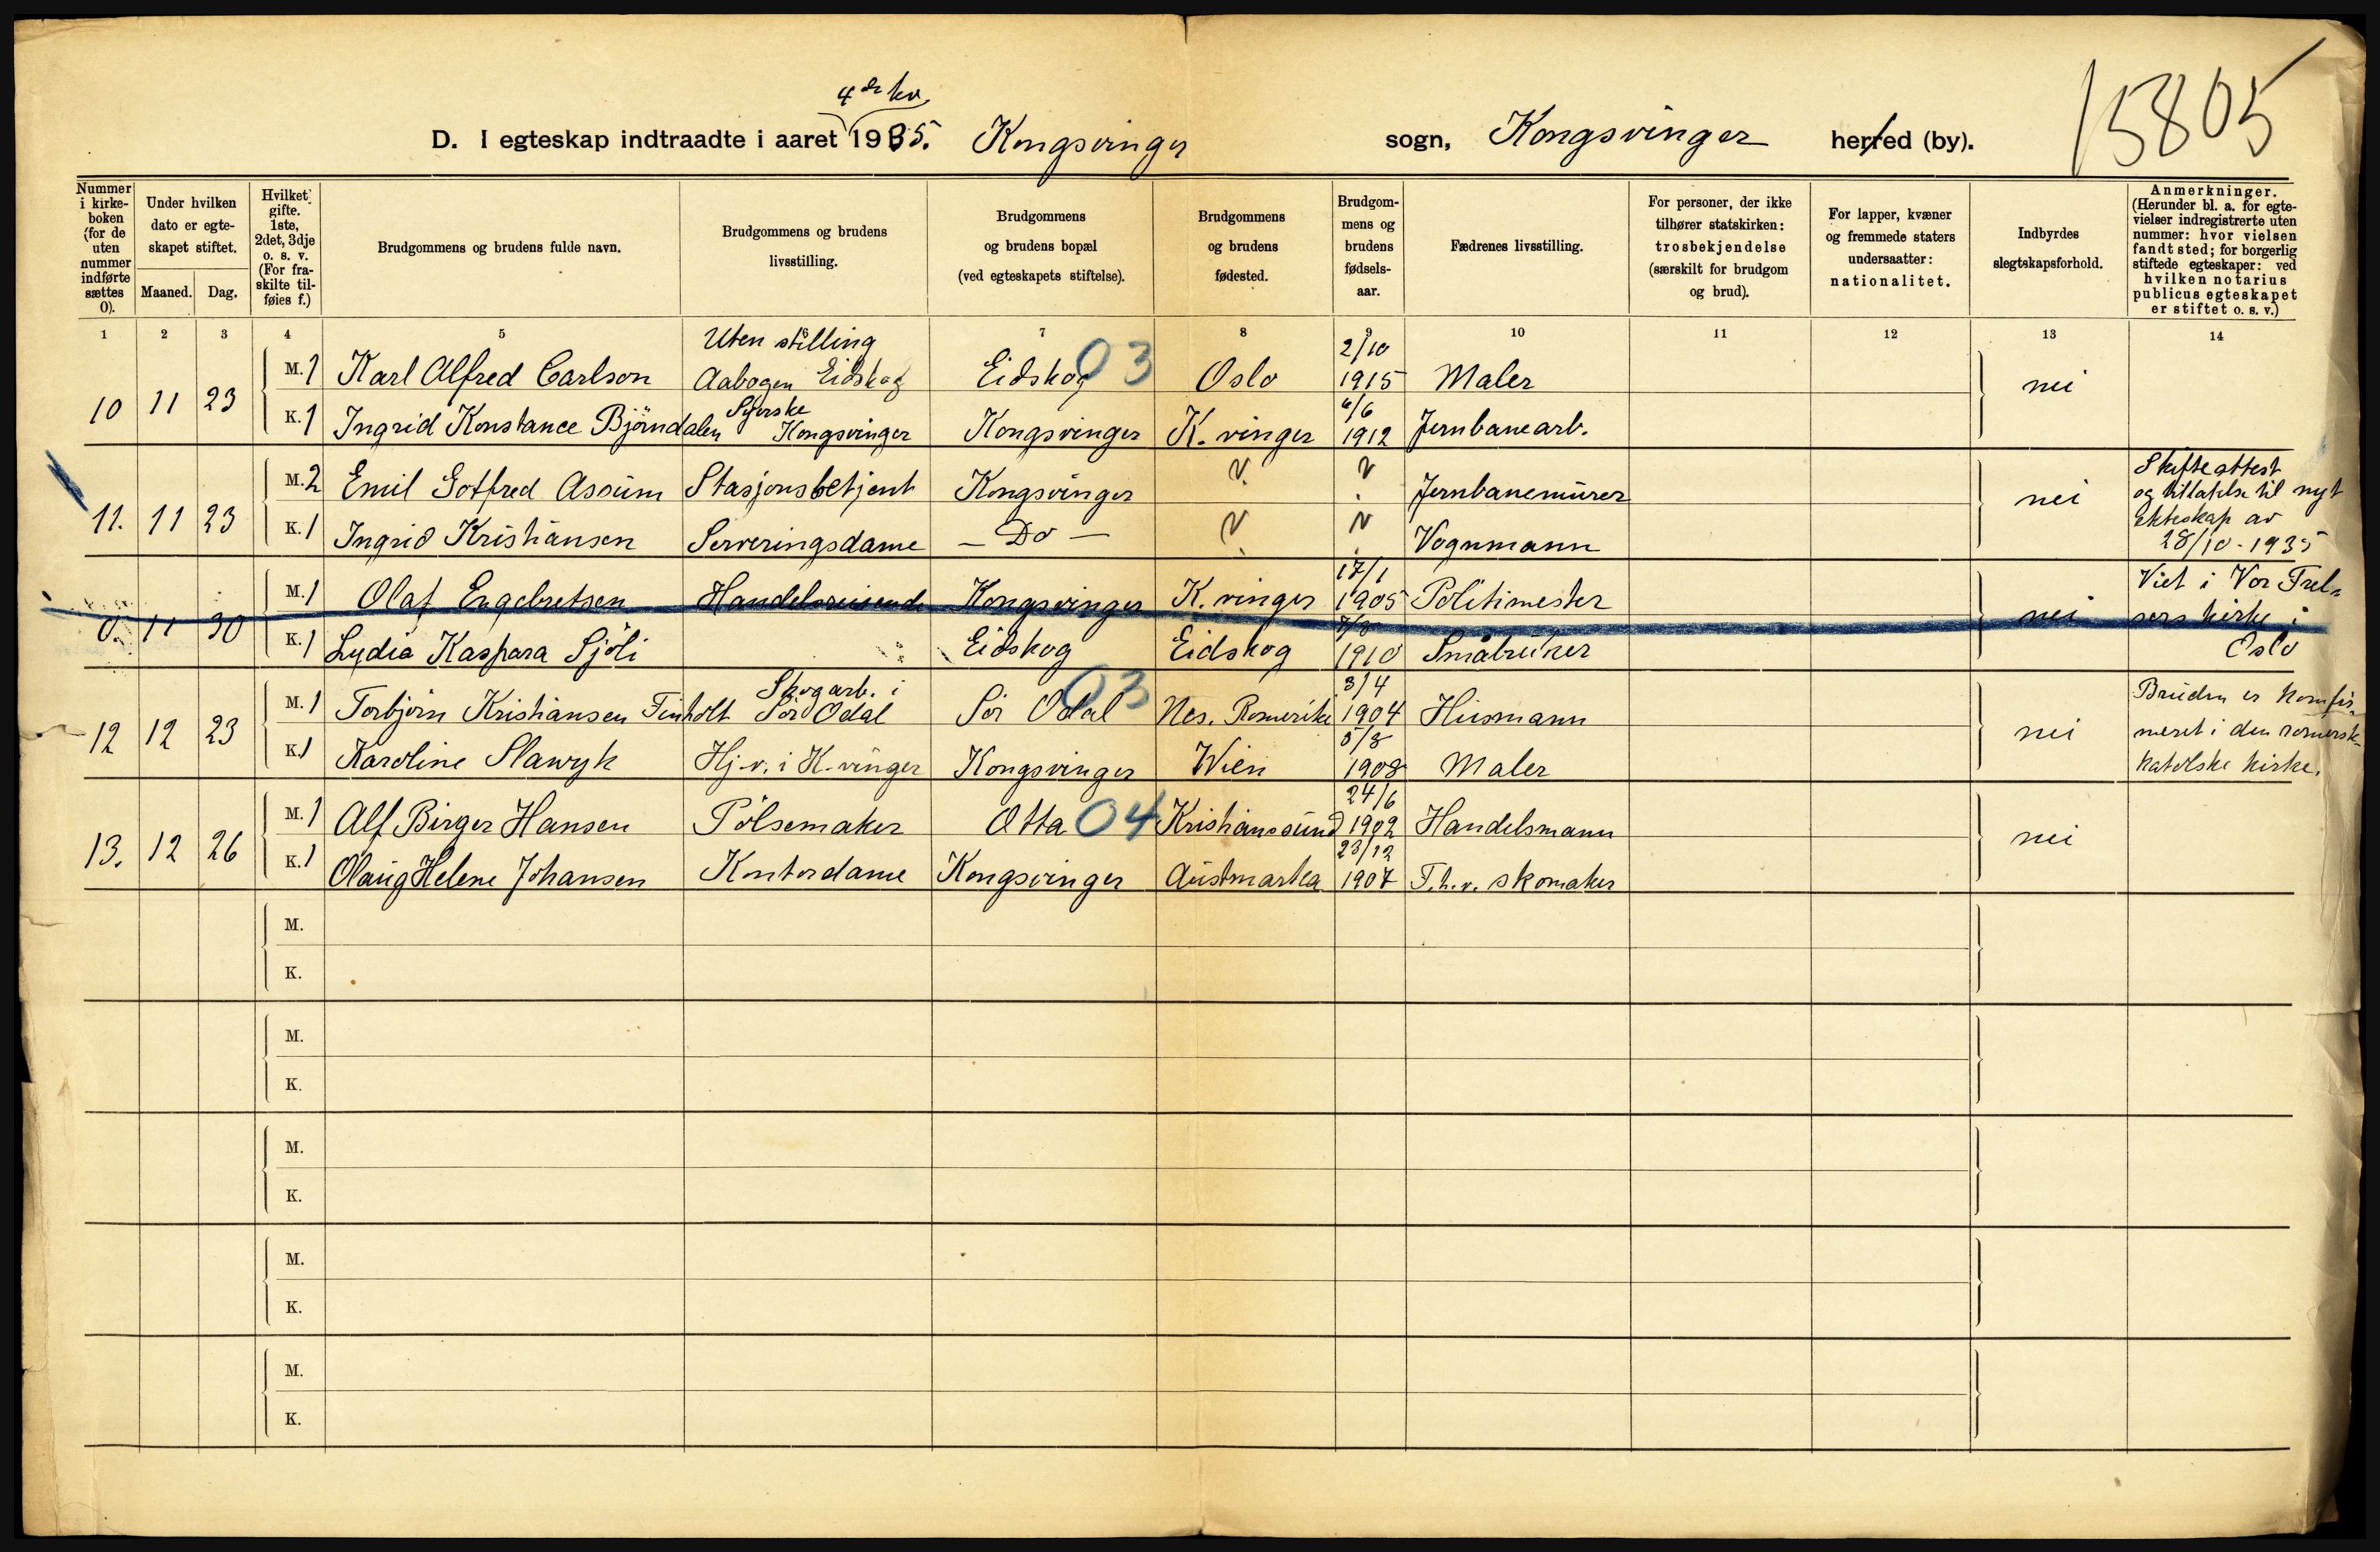 4de kv.
D. I egteskap indtraadte i aaret 1935. Kongsvinger sogn, Kongsvinger herred (by).
15805
Nummer i kirke-boken (for de uten nummer indførte sættes 0).
Under hvilken dato er egte-skapet stiftet.
Maaned. Dag.
Hvilket gifte. 1ste, 2det, 3dje o. s. v. (For fra-skilte til-føies f.)
Brudgommens og brudens fulde navn.
Brudgommens og brudens livsstilling.
Brudgommens og brudens bopæl (ved egteskapets stiftelse).
Brudgommens og brudens fødested.
Brudgom-mens og brudens fødsels-aar.
Fædrenes livsstilling.
For personer, der ikke tilhører statskirken: trosbekjendelse (særskilt for brudgom og brud).
For lapper, kvæner og fremmede staters undersaatter: nationalitet.
Indbyrdes slegtskapsforhold.
Anmerkninger. (Herunder bl. a. for egte-vielser indregistrerte uten nummer: hvor vielsen fandt sted; for borgerlig stiftede egteskaper: ved hvilken notarius publicus egteskapet er stiftet o. s. v.)
1 2 3 4 5 6 7 8 9 10 11 12 13 14
10 11 23
M. 1 Karl Alfred Carlson Uten stilling Aabogen Eidskog Eidskog 03 Oslo 2/10 1915 Maler nei
K. 1 Ingrid Konstance Björndalen Syerske Kongsvinger Kongsvinger K. vinger 6/6 1912 Jernbanearb.
11. 11 23
M. 2 Emil Gotfred Assum Stasjonsbetjent Kongsvinger ? ? Jernbanemurer nei Skifteattest og tillatelse til nyt
K. 1 Ingrid Kristiansen Serveringsdame — Do — ? ? Vognmann ekteskap av 28/10-1935
0. 11 30
M. 1 Olaf Engebretsen Handelsreisende Kongsvinger K. vinger 17/1 1905 Politimester nei Viet i Vor Frel-sers kirke i
K. 1 Lydia Kaspara Sjöli Eidskog Eidskog 7/8 1910 Småbruker Oslo
12 12 23
M. 1 Torbjörn Kristiansen Finholt Skogarb. i Sör Odal Sör Odal 03 Nes. Romerike 3/4 1904 Husmann nei Bruden er konfir-
K. 1 Karoline Slawyk Hj.v. i K. vinger Kongsvinger Wien 5/8 1908 Maler meret i den romersk-katolske kirke.
13. 12 26
M. 1 Alf Birger Hansen Pölsemaker Otta 04 Kristiansund 24/6 1902 Handelsmann nei
K. 1 Olaug Helene Johansen Kontordame Kongsvinger Austmarka 23/12 1907 F.h.v. skomaker
M.
K.
M.
K.
M.
K.
M.
K.
M.
K.